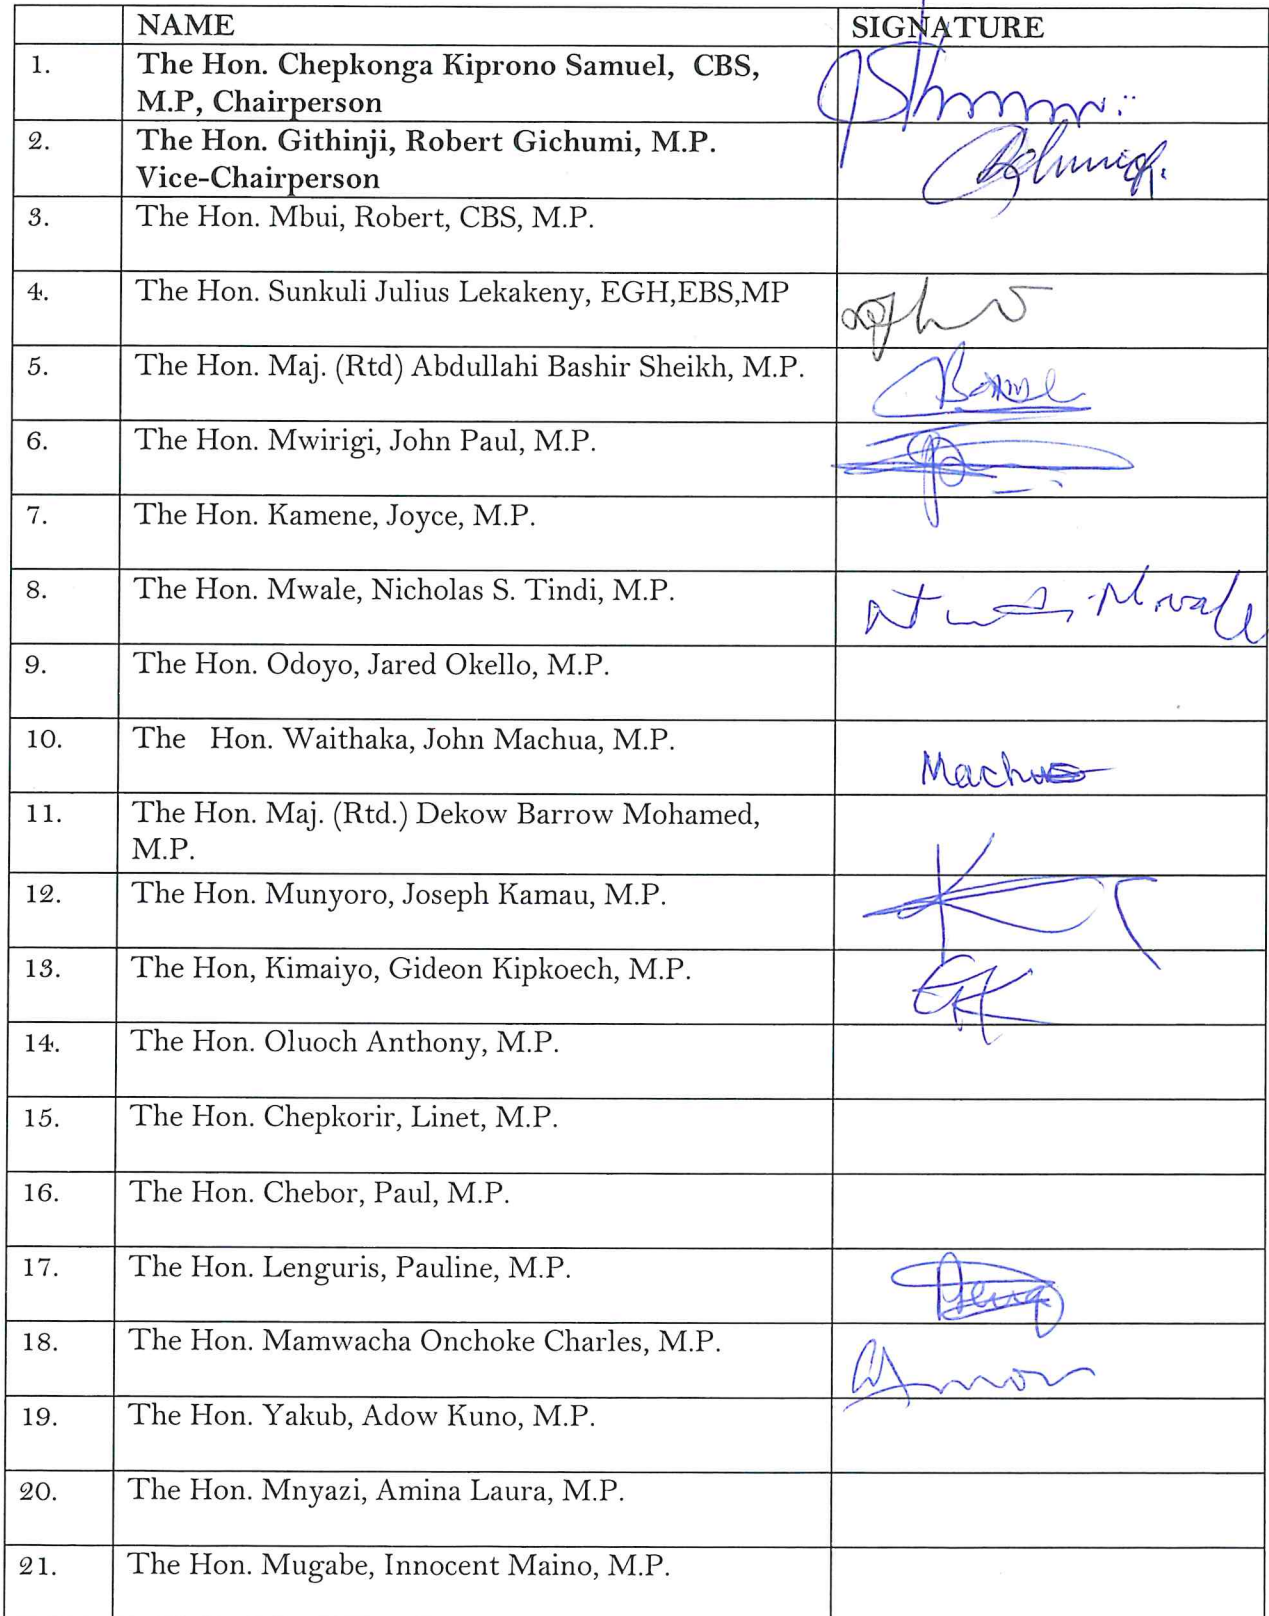 NAME SIGNATURE
1. The Hon. Chepkonga Kiprono Samuel, CBS,
M.P, Chairperson
2. The Hon. Githinji, Robert Gichumi, M.P.
Vice-Chairperson
3. The Hon. Mbui, Robert, CBS, M.P.
4. The Hon. Sunkuli Julius Lekakeny, EGH,EBS,MP
5. The Hon. Maj. (Rtd) Abdullahi Bashir Sheikh, M.P.
6. The Hon. Mwirigi, John Paul, M.P.
7. The Hon. Kamene, Joyce, M.P.
8. The Hon. Mwale, Nicholas S. Tindi, M.P. Mwale
9. The Hon. Odoyo, Jared Okello, M.P.
10. The Hon. Waithaka, John Machua, M.P. Machua
11. The Hon. Maj. (Rtd.) Dekow Barrow Mohamed,
M.P.
12. The Hon. Munyoro, Joseph Kamau, M.P.
13. The Hon, Kimaiyo, Gideon Kipkoech, M.P. GKK
14. The Hon. Oluoch Anthony, M.P.
15. The Hon. Chepkorir, Linet, M.P.
16. The Hon. Chebor, Paul, M.P.
17. The Hon. Lenguris, Pauline, M.P.
18. The Hon. Mamwacha Onchoke Charles, M.P.
19. The Hon. Yakub, Adow Kuno, M.P.
20. The Hon. Mnyazi, Amina Laura, M.P.
21. The Hon. Mugabe, Innocent Maino, M.P.